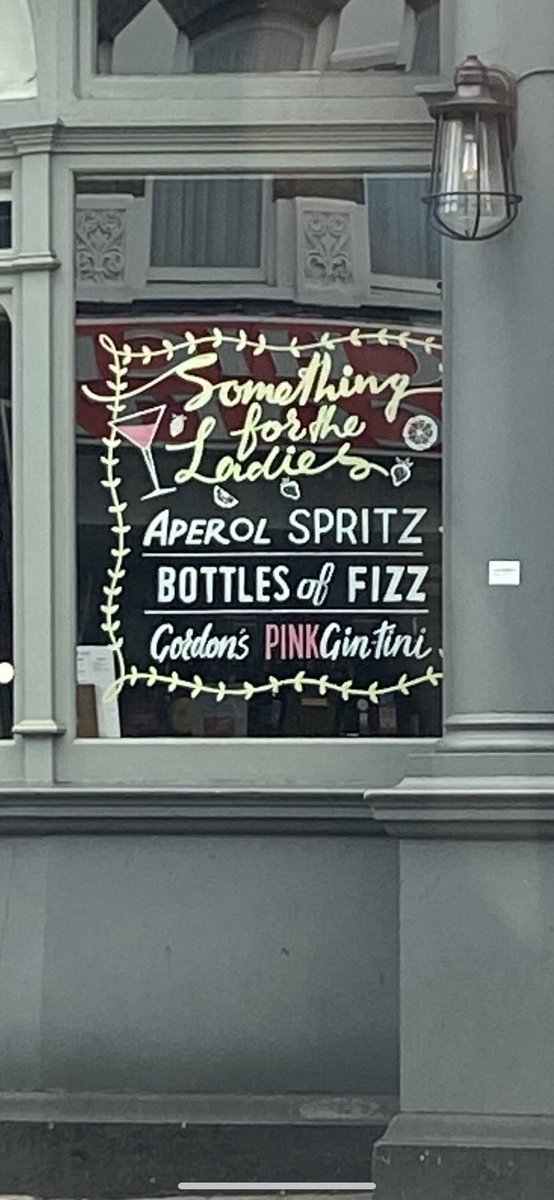 Something
for the
Ladies
APEROL SPRITZ
BOTTLES of FIZZ
Gordon's PINK Gin tini